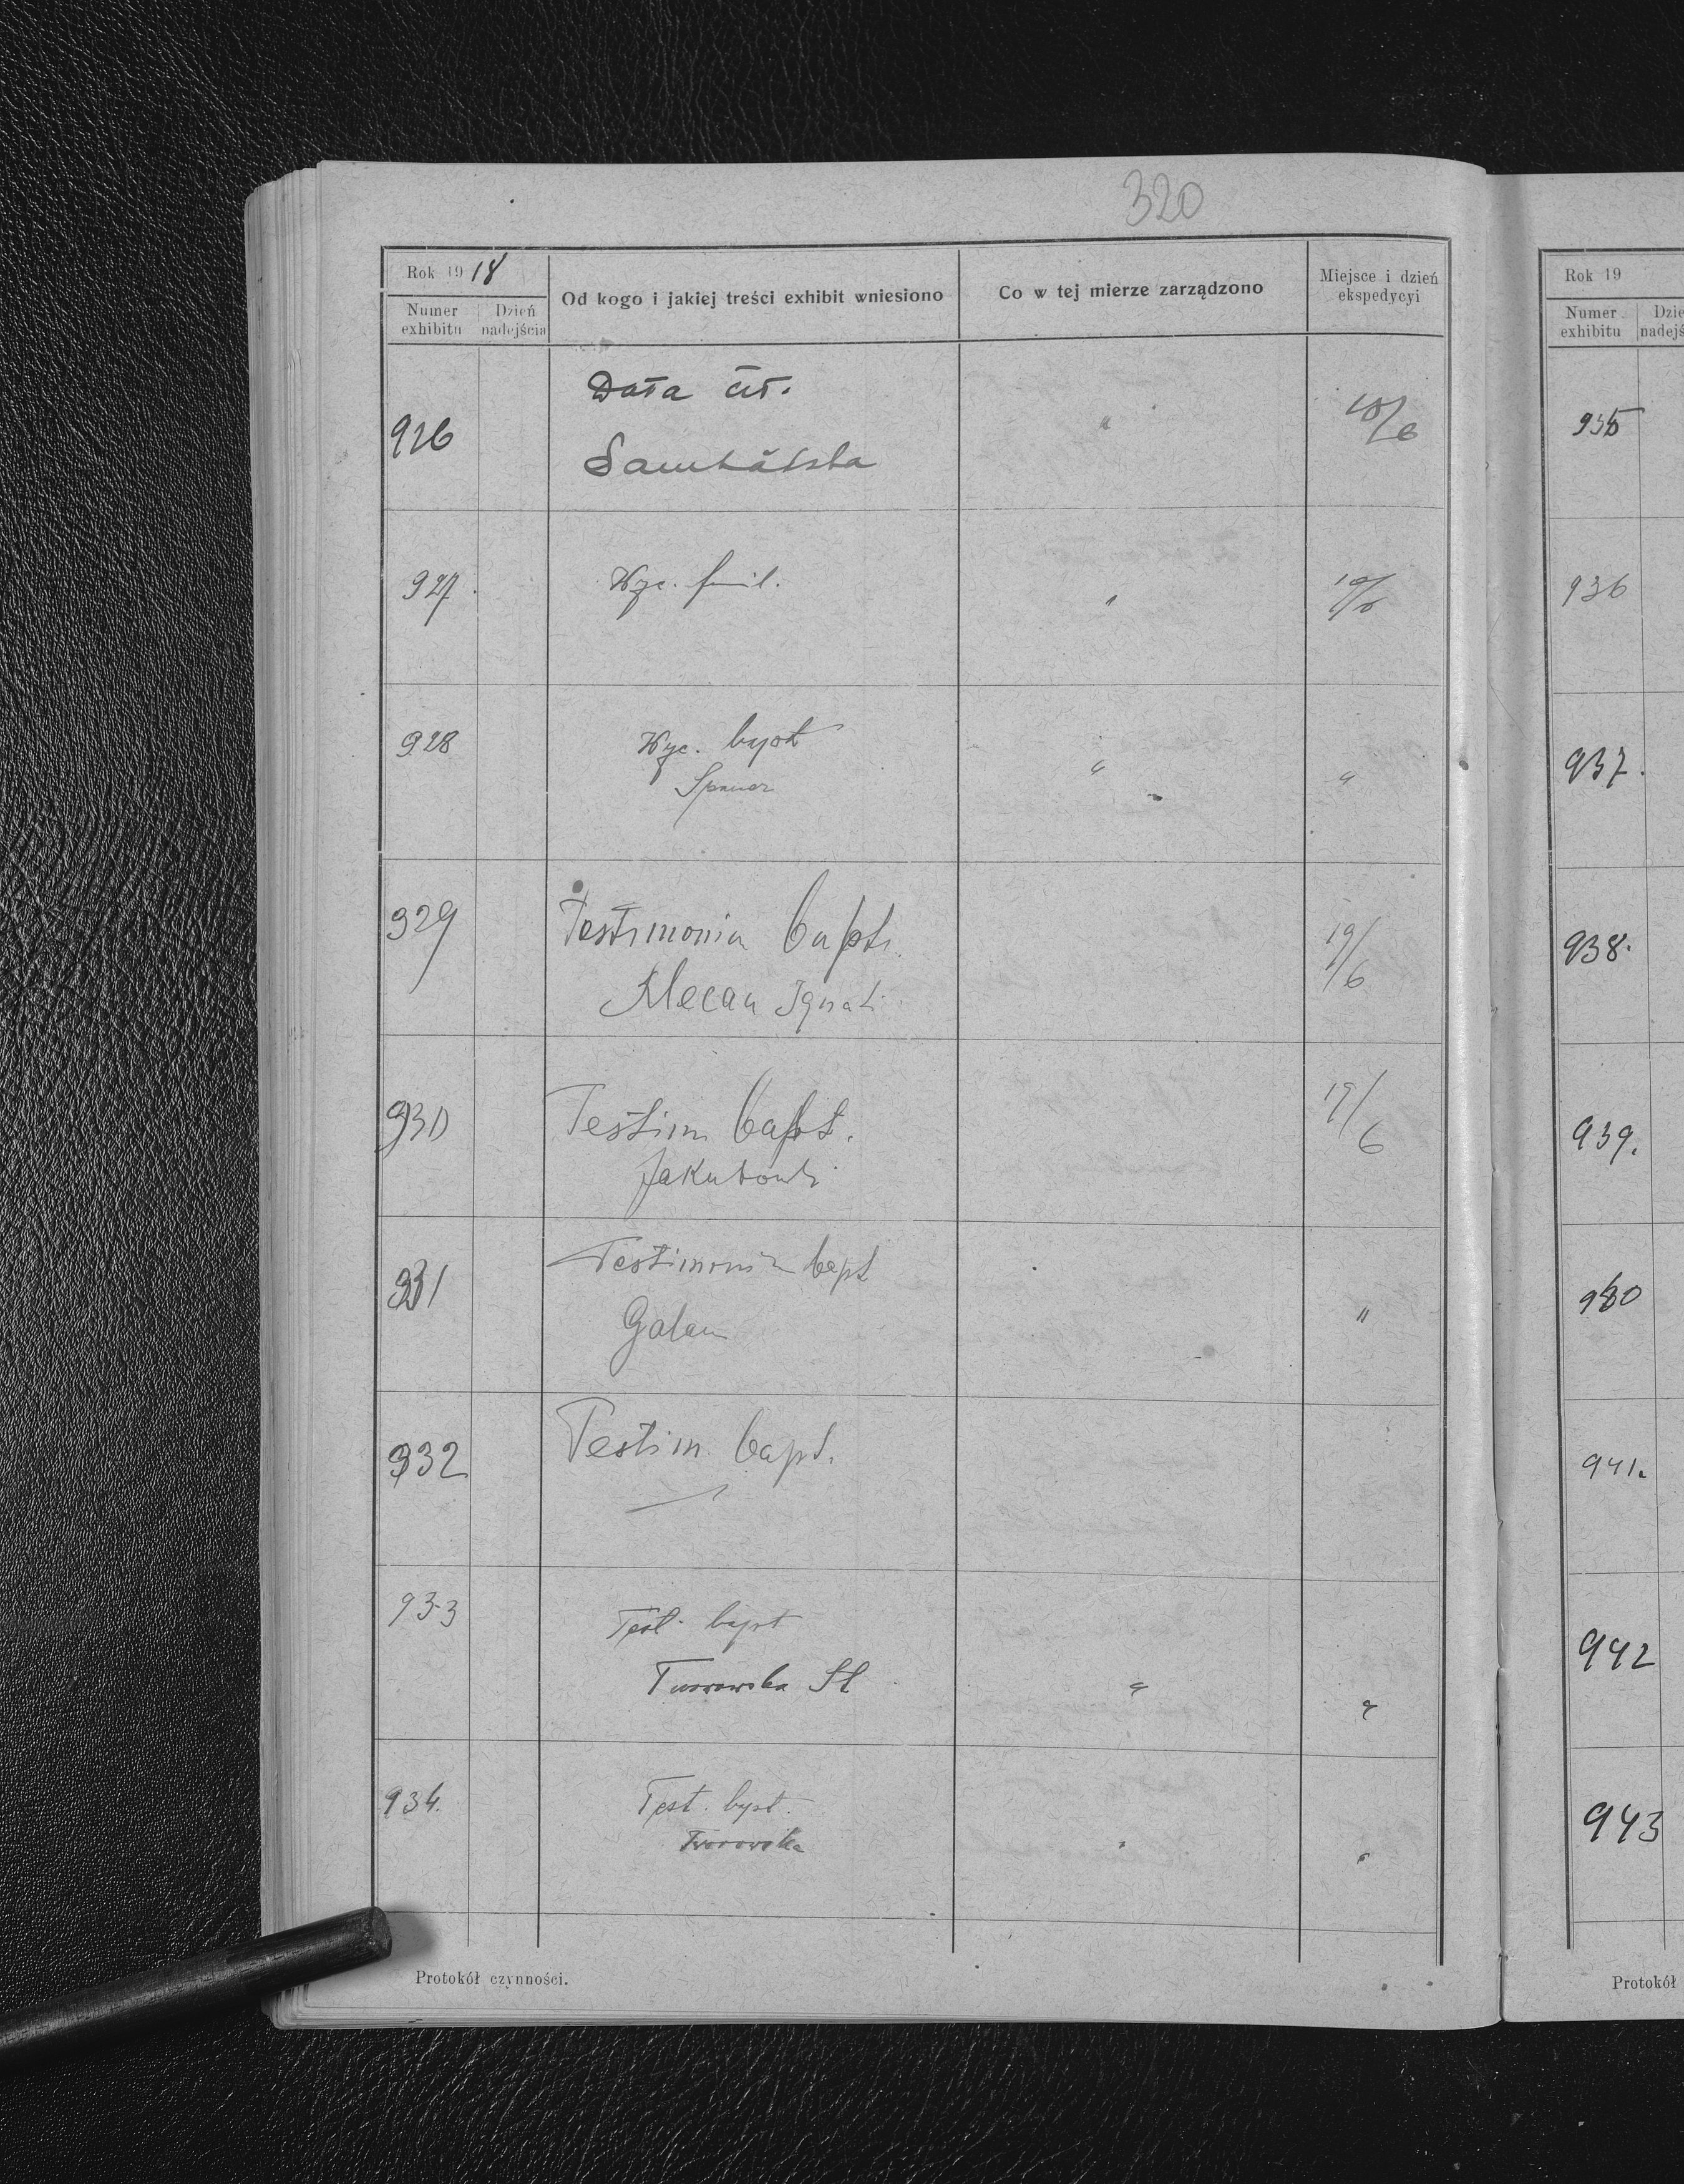 320
Rok 1918
Numer exhibitu
Dzień nadejścia
Od kogo i jakiej treści exhibit wniesiono
Co w tej mierze zarządzono
Miejsce i dzień ekspedycyi
926
Data
"
18/6
927.
Wyc. famil.
"
19/6
928
Wyc. bapt
"
"
929
Testimonia bapti.
Ignati
19/6
930
Testim bapt.
19/6
931
Testimonia bapt
Galan
"
932
Testim bapt.
933
Test. bapt
Tworowska St
"
"
934.
Test. bapt.
Tworowska
"
"
Protokół czynności.
Rok 19
Numer exhibitu
935
936
937.
938.
939.
940
941.
942
943
Protokół